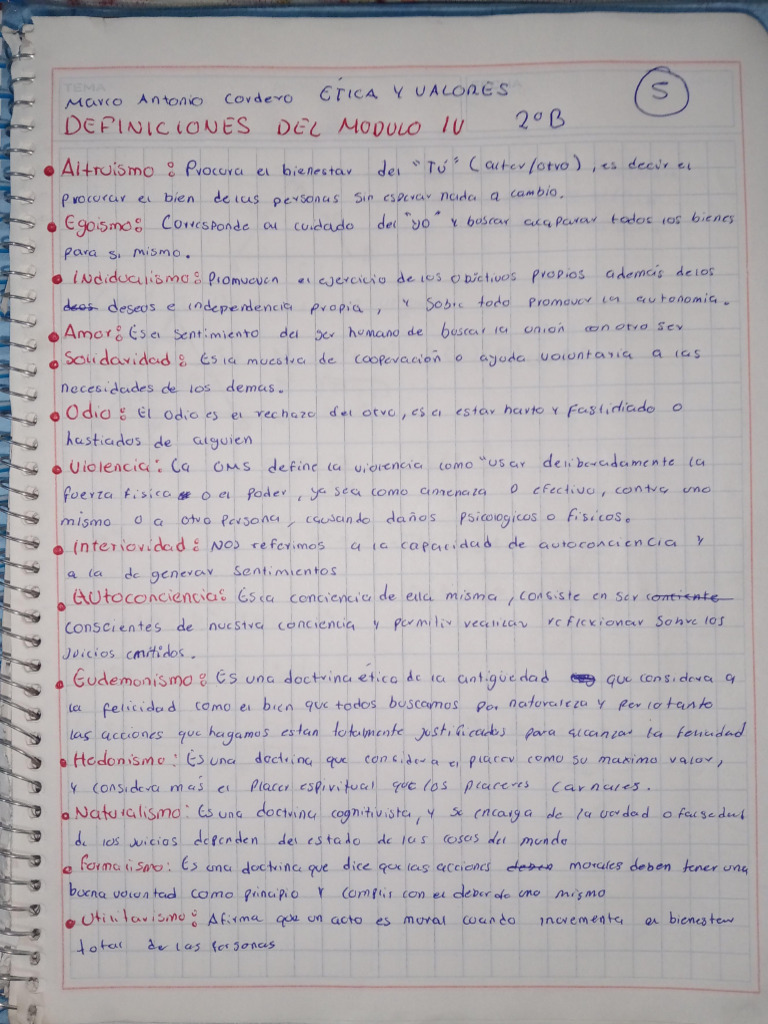 TEMA
Marco Antonio Cordero ETICA Y VALORES
5
DEFINICIONES DEL MODULO IV 2ºB
Altruismo: Procura el bienestar del "Tú" (alter/otro), es decir el
procurar el bien de las personas sin esperar nada a cambio.
Egoismo: Corresponde al cuidado del "yo" y buscar acaparar todos los bienes
para si mismo.
Indidualismo: Promueven el ejercicio de los objetivos propios además de los
deseos e independencia propia, y sobre todo promover la autonomia.
Amor: Es el sentimiento del ser humano de buscar la unión con otro ser
Solidaridad: Es la muestra de cooperación o ayuda voluntaria a las
necesidades de los demas.
Odio: El odio es el rechazo del otro, es el estar harto y fastidiado o
hastiados de alguien
Violencia: La OMS define la violencia como "usar deliberadamente la
fuerza fisica o el poder, ya sea como amenaza o efectivo, contra uno
mismo o a otra persona, causando daños psicologicos o fisicos.
Interioridad: Nos referimos a la capacidad de autoconciencia y
a la de generar sentimientos
Autoconciencia: Es la conciencia de ella misma, consiste en ser contiente
conscientes de nuestra conciencia y permitir realizar reflexionar sobre los
juicios emitidos.
Eudemonismo: Es una doctrina ética de la antigüedad que considera a
la felicidad como el bien que todos buscamos por naturaleza y por lo tanto
las acciones que hagamos estan totalmente justificados para alcanzar la felicidad
Hedonismo: Es una doctrina que considera el placer como su maximo valor,
y considera más el placer espiritual que los placeres carnales.
Naturalismo: Es una doctrina cognitivista, y se encarga de la verdad o falsedad
de los juicios dependen del estado de las cosas del mundo
Formalismo: Es una doctrina que dice que las acciones deben morales deben tener una
buena voluntad como principio y cumplir con el deber de uno mismo
Utilitarismo: Afirma que un acto es moral cuando incrementa el bienestar
total de las personas